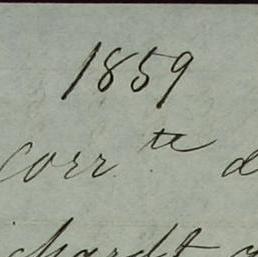 1859
corr te d
chardt